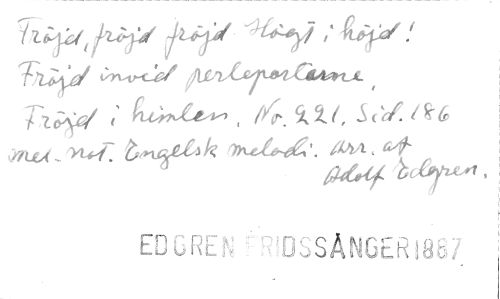 Fröjd, fröjd fröjd Högt i höjd!
Fröjd invid perleportarne,
Fröjd i himlen. No. 221. Sid. 186
mel. not. Engelsk melodi. arr. af
Adolf Edgren.
EDGREN FRIDSSÅNGER 1887